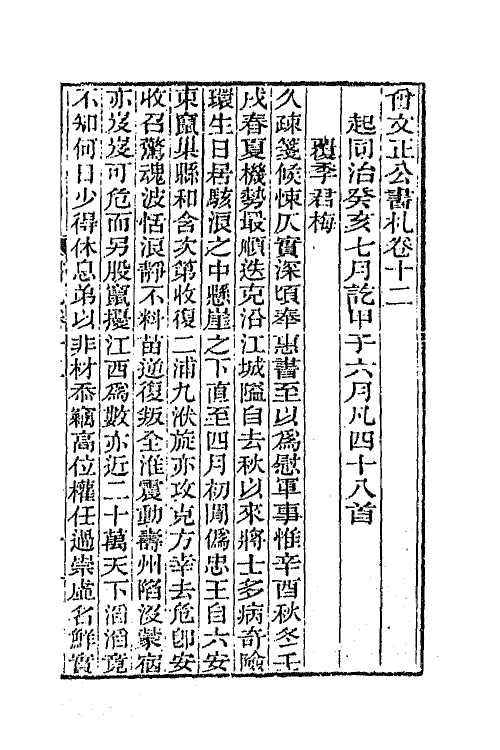 曾文正公書札卷十二
起同治癸亥七月訖甲子六月凡四十八首
覆李君梅
久疎箋候悚仄實深頃奉惠書至以爲慰軍事惟辛酉秋冬壬
戌春夏機勢最順迭克沿江城隘自去秋以來將士多病奇險
環生日居駭浪之中懸崖之下直至四月初聞僞忠王自六安
東竄巢縣和含次第收復二浦九洑旋亦攻克方幸去危卽安
收召驚魂波恬浪靜不料苗逆復叛全淮震動壽州陷沒蒙宿
亦岌岌可危而另股竄擾江西爲數亦近二十萬天下滔滔竟
不知何日少得休息弟以非材忝竊高位權任過崇虛名鮮實